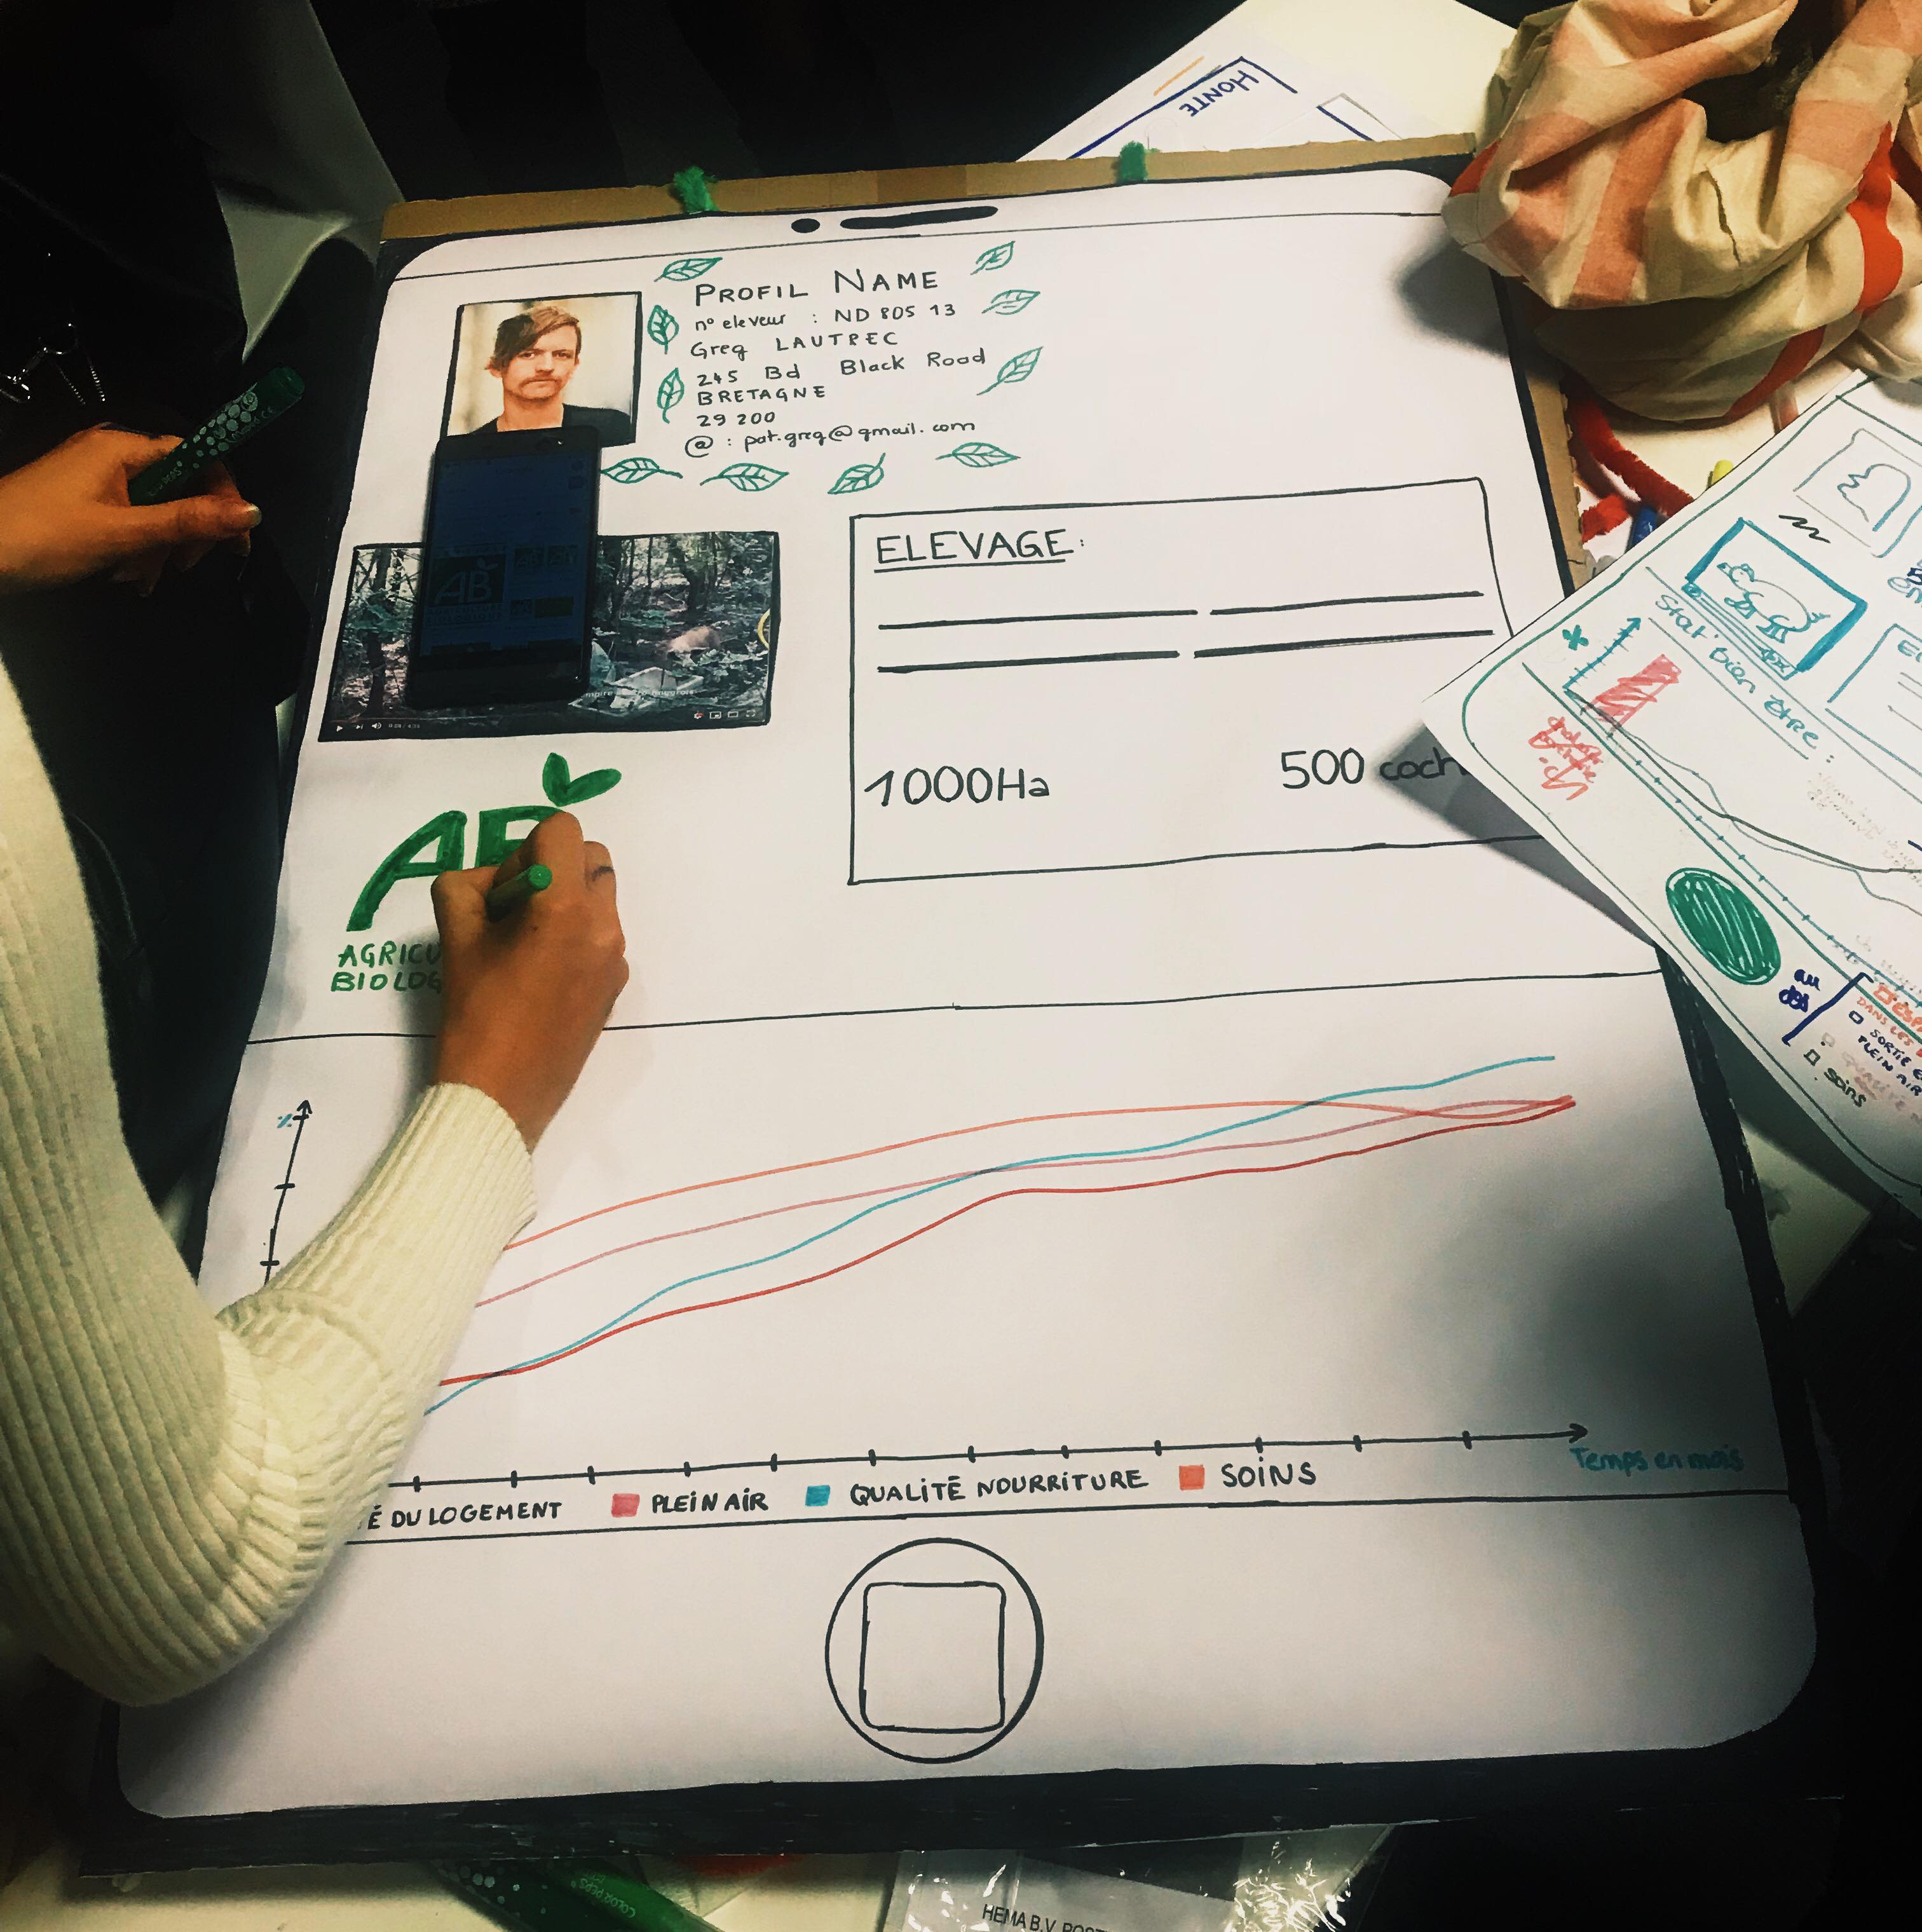 HONTE
PROFIL NAME
n° eleveur : ND 805 13
Greg LAUTREC
245 Bd Black Road
BRETAGNE
29 200
@ : pat.greg@gmail.com
AB
ELEVAGE:
1000Ha
500 coch
AB
AGRICU
BIOLOG
%
Temps en mois
É DU LOGEMENT
PLEIN AIR
QUALITÉ NOURRITURE
SOINS
Stat' bien être :
%
au
DANS LES
SORTIE
PLEIN AIR
soins
HEMA B.V.